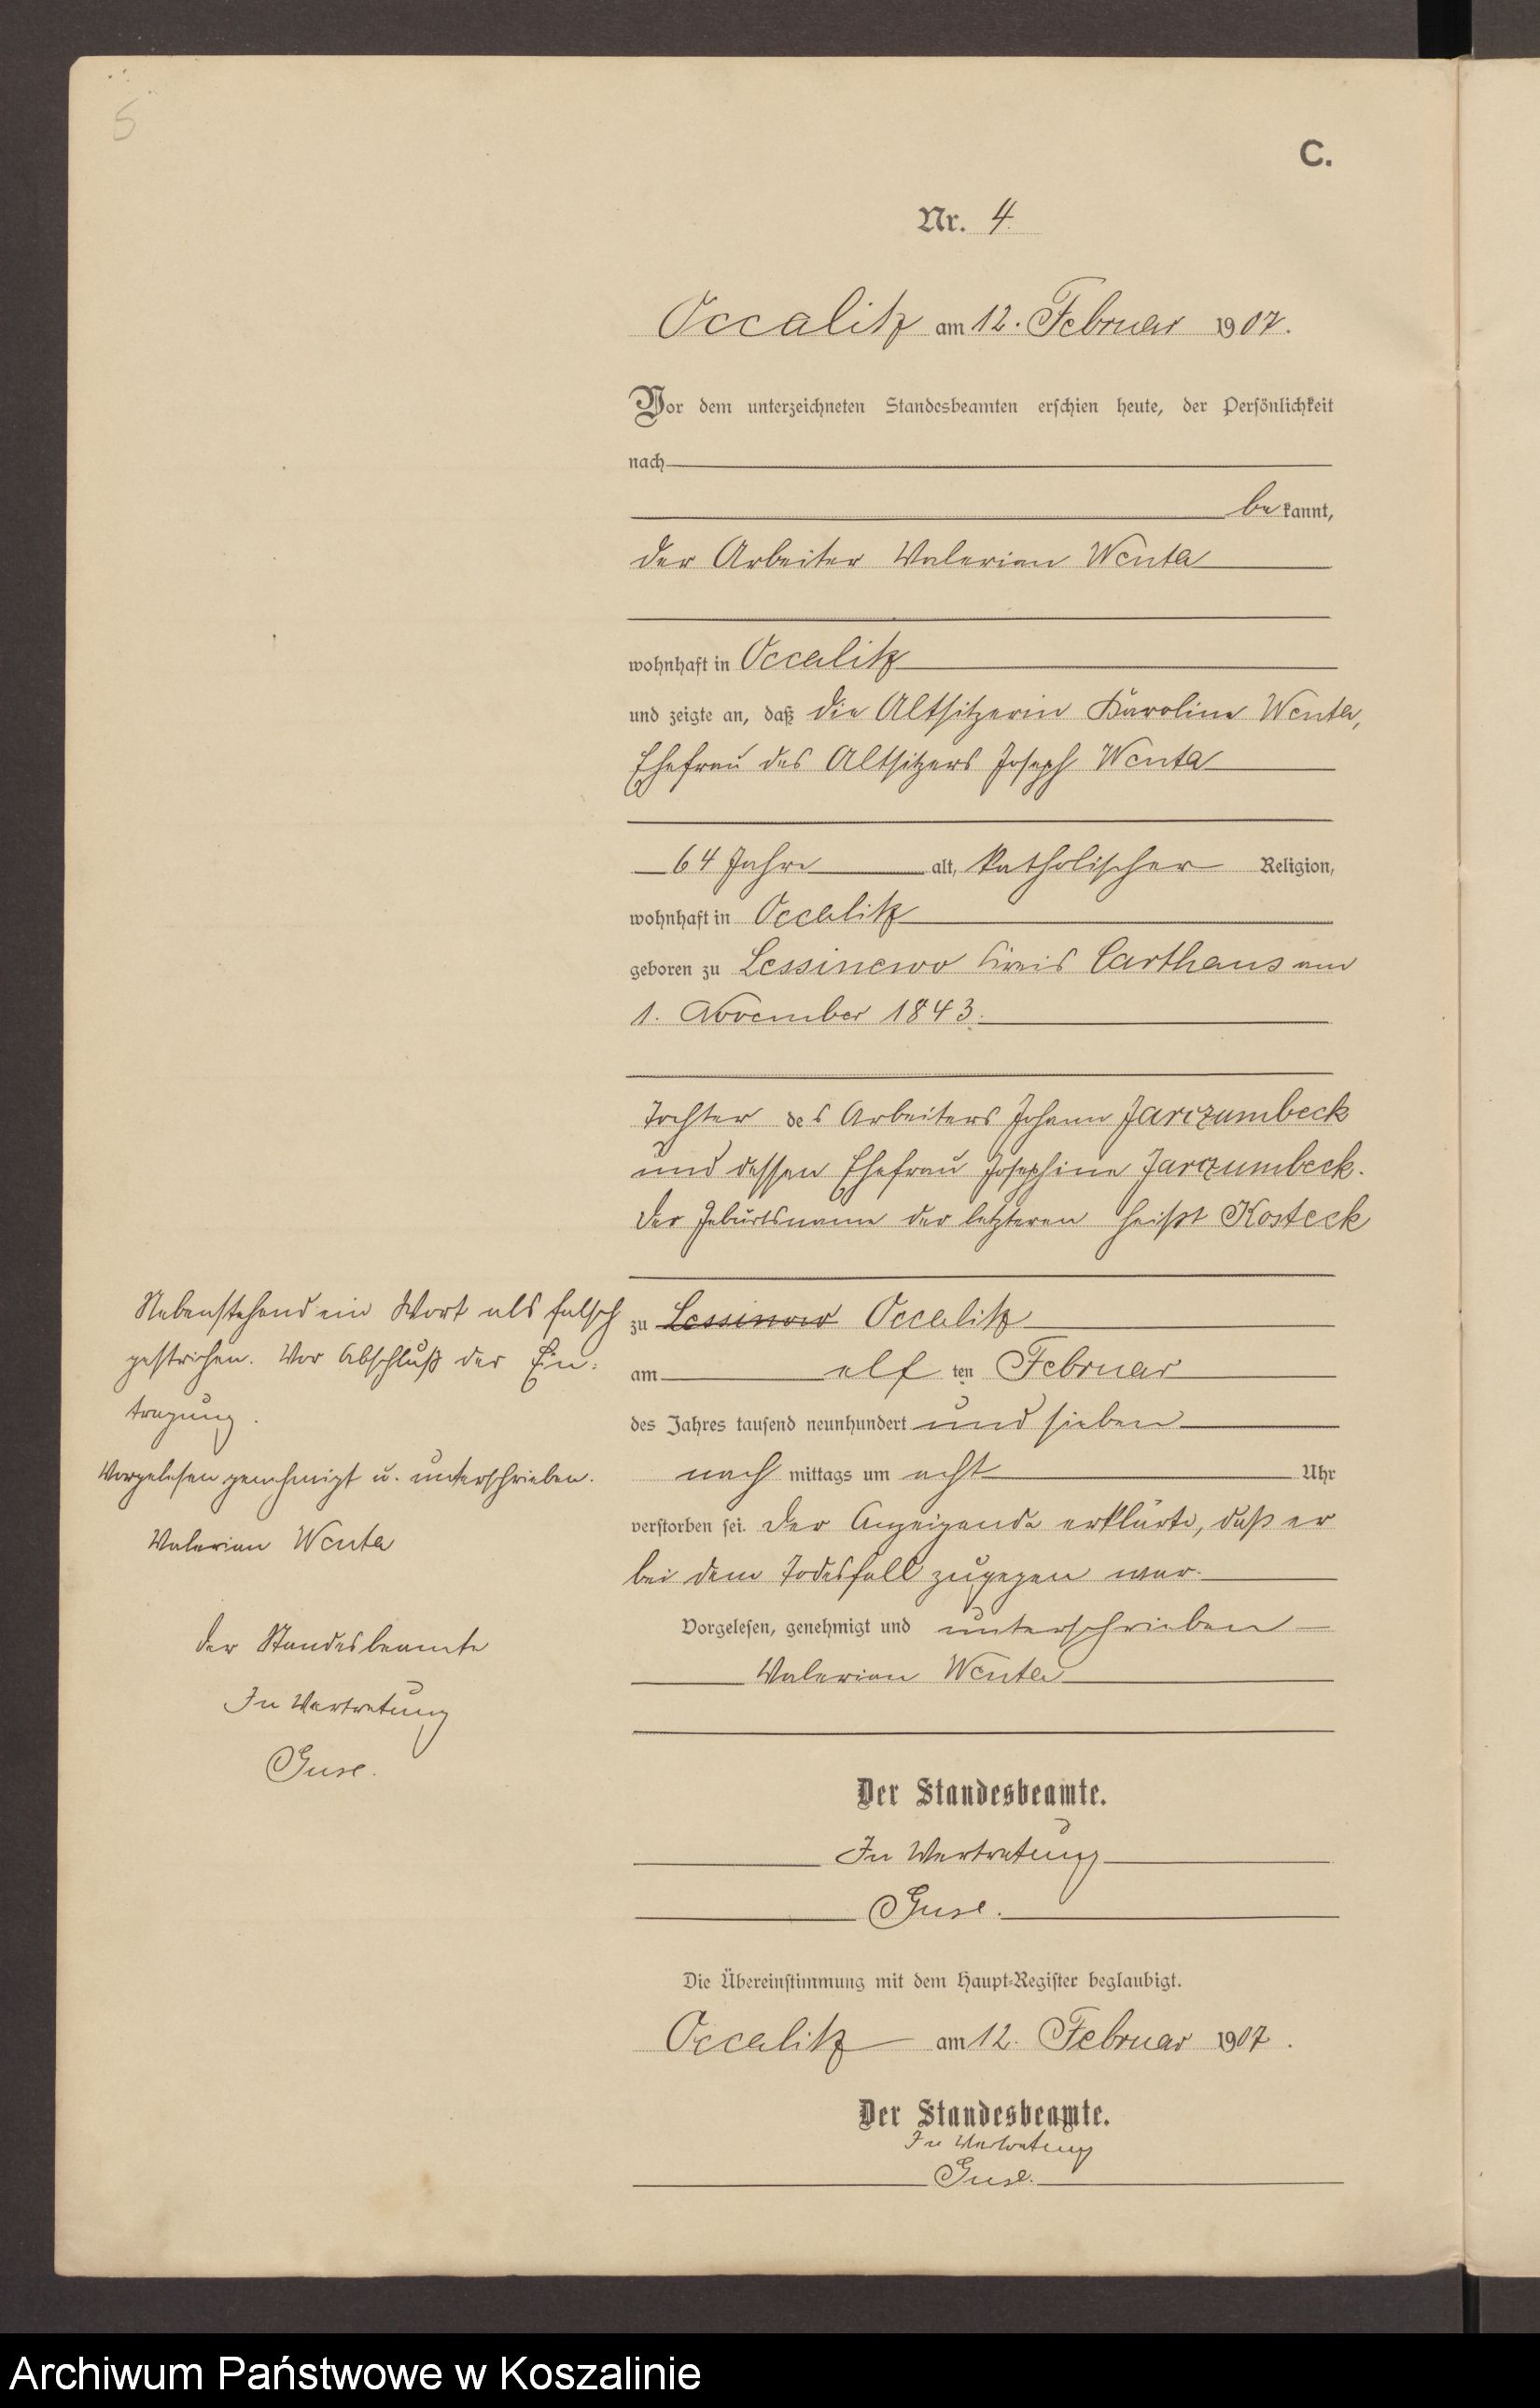 5
C.
Nr. 4.
Occalitz am 12. Februar 1907.
Vor dem unterzeichneten Standesbeamten erschien heute, der Persönlichkeit
nach
be kannt,
der Arbeiter Valerian Wenta
wohnhaft in Occalitz
und zeigte an, daß die Altsitzerin Karoline Wenta,
Ehefrau des Altsitzers Joseph Wenta
64 Jahre alt, katholischer Religion,
wohnhaft in Occalitz
geboren zu Lessinewo Kreis Carthaus am
1. November 1843.
Tochter des Arbeiters Johann Jarczumbeck
und dessen Ehefrau Josephine Jarczumbeck.
Der Geburtsname der letzteren heißt Kosteck
zu Lessinowo Occalitz
am elf ten Februar
des Jahres tausend neunhundert und sieben
nach mittags um acht Uhr
verstorben sei. Der Anzeigende erklärte, daß er
bei dem Todesfall zugegen war.
Vorgelesen, genehmigt und unterschrieben
Valerian Wenta
Der Standesbeamte.
In Vertretung
Guse.
Die Übereinstimmung mit dem Haupt-Register beglaubigt.
Occalitz am 12. Februar 1907.
Der Standesbeamte.
In Vertretung
Guse.
Nebenstehend ein Wort als falsch
gestrichen. Vor Abschluß der Ein-
tragung.
Vorgelesen genehmigt u. unterschrieben.
Valerian Wenta
Der Standesbeamte
In Vertretung
Guse.
Archiwum Państwowe w Koszalinie